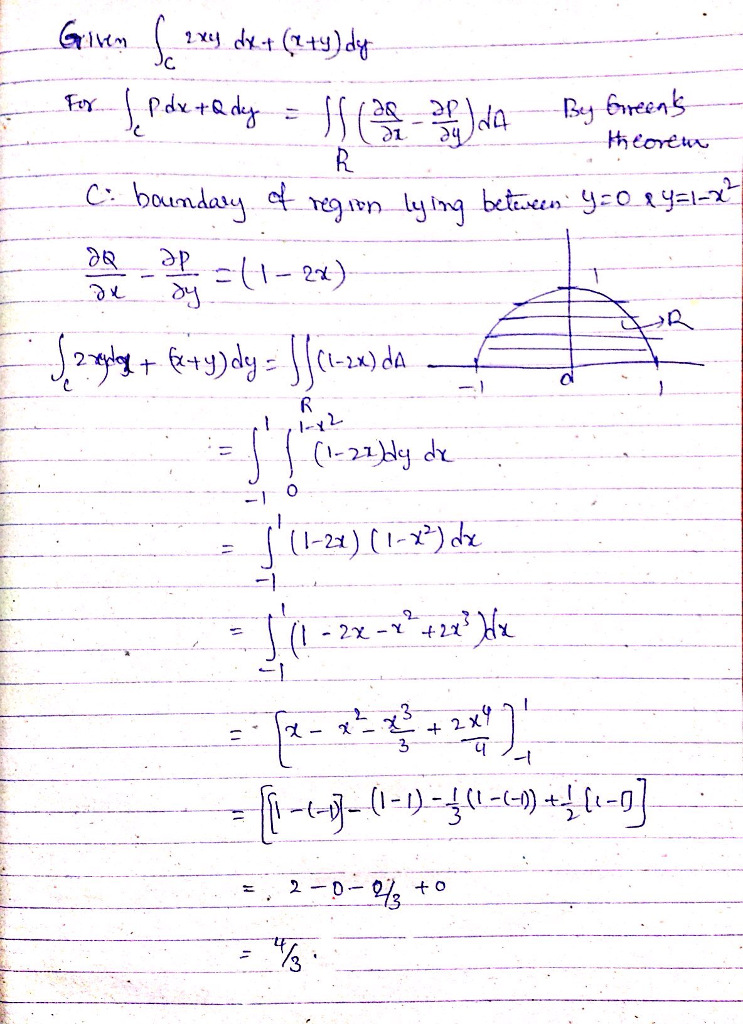 Given ∫_C 2xy dx + (x+y)dy
For ∫_C Pdx+Qdy = ∬_R (∂Q/∂x - ∂P/∂y)dA By Green's theorem
C: boundary of region lying between y=0 & y=1-x²
∂Q/∂x - ∂P/∂y = (1-2x)
1
R
-1 0 1
∫_C 2xydx + (x+y)dy = ∬_R (1-2x)dA
= ∫_{-1}^{1} ∫_0^{1-x²} (1-2x)dy dx
= ∫_{-1}^{1} (1-2x)(1-x²)dx
= ∫_{-1}^{1} (1-2x-x²+2x³)dx
= [x - x² - x³/3 + 2x⁴/4]_{-1}^{1}
= [[1-(-1)] - (1-1) - 1/3(1-(-1)) + 1/2(1-1)]
= 2-0-2/3+0
= 4/3.